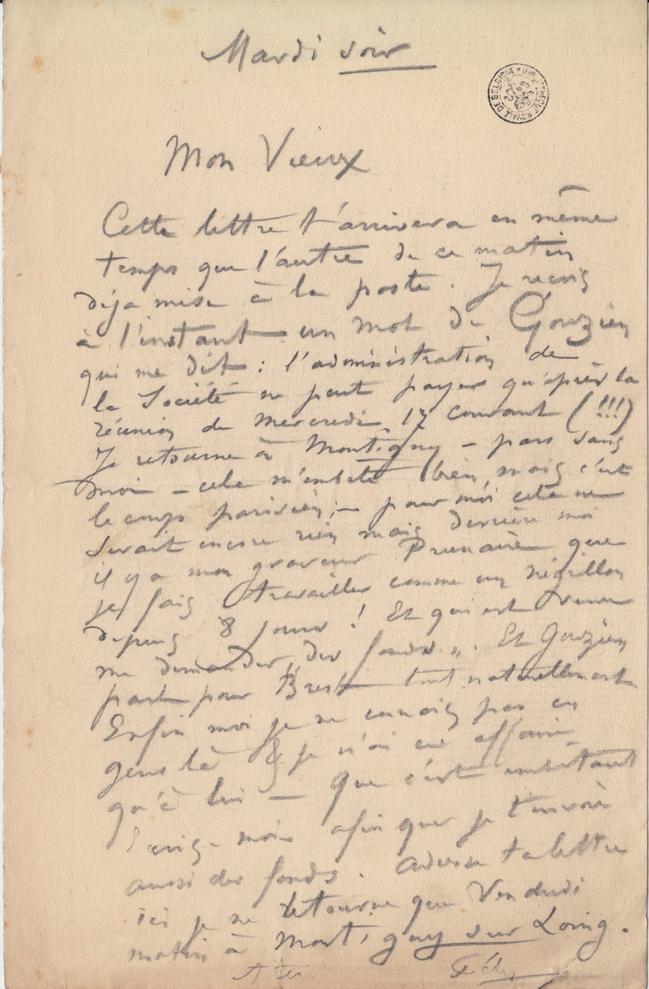 Mardi soir
BIBLIOTHÈQUE ROYALE DE BELGIQUE
Mon Vieux
Cette lettre t'arrivera en même
temps que l'autre de ce matin
déja mise à la poste. Je reçois
à l'instant un mot de Gouzien
qui me dit : l'administration de
la Société ne peut payer qu'après la
réunion du Mercredi 17 courant (!!!)
Je retourne à Montigny – pars sans
moi – cela m'embête bien, mais c'est
le coup parisien, – pour moi cela ne
serait encore rien mais derrière moi
il y a mon graveur Prunaire que
je fais travailler comme un négrillon
depuis 8 jours ! Et qui est venu
me demander „des fonds„. Et Gouzien
part pour Brest tout naturellement
Enfin moi je ne connais pas ces
gens là & je n'ai eu affaire
qu'à lui – que c'est embêtant
Ecris-moi afin que je t'envoie
aussi des fonds. Adresse ta lettre
ici je ne retourne que Vendredi
matin à Montigny sur Loing.
A toi Fély